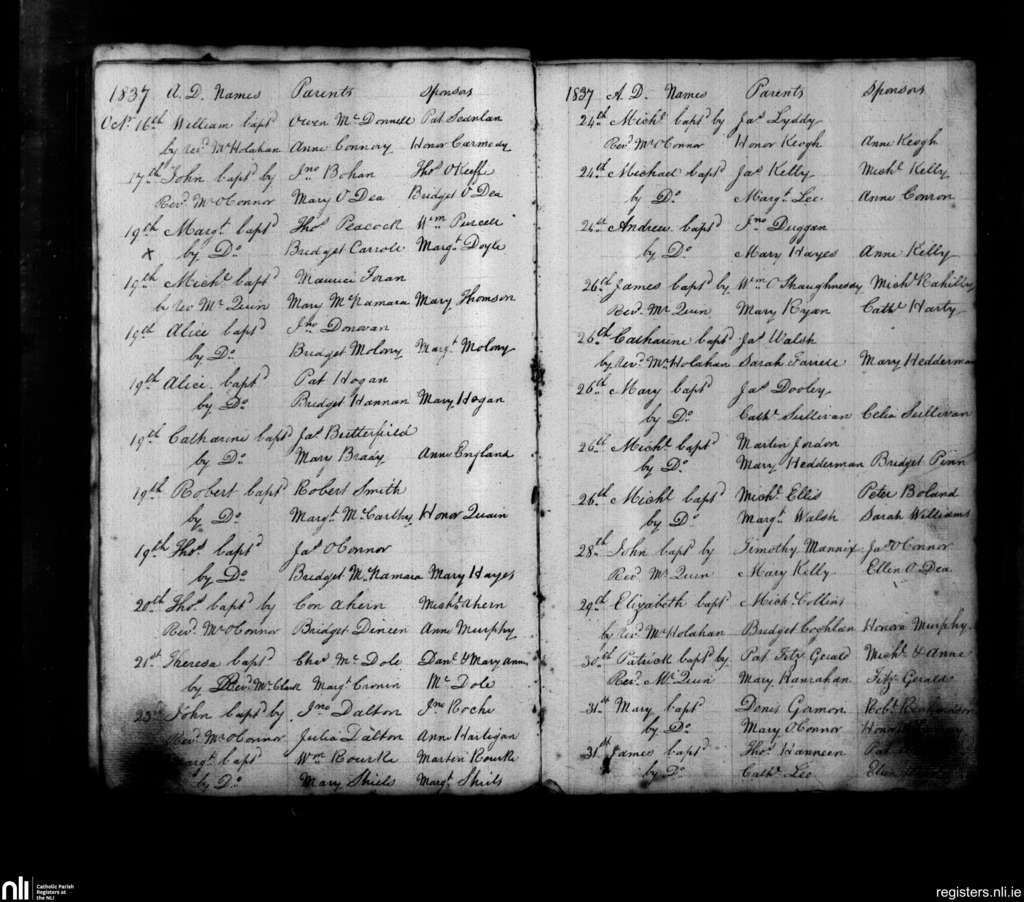 1837 A. D. Names Parents Sponsors
Octr. 16th William baptd Owen McDonnell Pat Scanlan
by Revd. Mr Holahan Anne Connory Honor Carmody
17th John baptd by Jno Bohan Thos OKeffe
Revd. Mr OConnor Mary O Dea Bridget O Dea
19th Margt. baptd Thos Peacock Wm Purcell
x by Do Bridget Carroll Margt. Doyle
19th Michl. baptd Maurice Foran
by Rev Mr Quin Mary McNamara Mary Thomson
19th Alice baptd Jno Donovan
by Do Bridget Molony Margt. Molony
19th Alice baptd Pat Hogan
by Do Bridget Hannan Mary Hogan
19th Catharine baptd Jas. Butterfield
by Do Mary Brady Anne England
19th Robert baptd Robert Smith
by Do Margt. McCarthy Honor Quain
19th Thos. baptd Jas OConnor
by Do Bridget McNamara Mary Hayes
20th Thos. baptd by Con Ahern Michl. Ahern
Revd. Mr OConnor Bridget Dineen Anne Murphy
21st Theresa baptd Chrs Mc Dole Danl. & Mary Anne
by Revd. Mr Clark Margt. Cronin Mc Dole
23d John baptd by Jno Dalton Jno Roche
Revd. Mr OConnor Julia Dalton Ann Hartigan
Margt. baptd Wm Rourke Martin Rourke
by Do Mary Shiels Margt. Shiels
1837 A. D. Names Parents Sponsors
24th Michl. baptd by Jas Lyddy
Revd. Mr OConnor Honor Keogh Anne Keogh
24th Michael baptd Jas Kelly Michl. Kelly
by Do Margt. Lee Anne Conron
24th Andrew baptd Jno Duggan
by Do Mary Hayes Anne Kelly
26th James baptd by Wm OShaughnessy Michl. Rahilly
Revd. Mr Quin Mary Ryan Cathe. Harty
26th Catharine baptd Jas Walsh
by Revd. Mr Holahan Sarah Farrell Mary Hedderman
26th Mary baptd Jas Dooley
by Do Cathe. Sullivan Celia Sullivan
26th Michl. baptd Martin Jordon
by Do Mary Hedderman Bridget Finn
26th Michl baptd Michl. Ellis Peter Boland
by Do Margt. Walsh Sarah Williams
28th John baptd by Timothy Mannix Jas OConnor
Revd. Mr Quin Mary Kelly Ellen O Dea
29th Elizabeth baptd Mich. Collins
by Revd. Mr Holahan Bridget Coghlan Honora Murphy
30th Patrick baptd by Pat Fitz Gerald Michl. & Anne
Revd. Mr Quin Mary Hanrahan Fitz Gerald
31st Mary baptd Denis Gorman Robt.
by Do Mary OConnor
31st James baptd Thos. Hanneen Pat
by Do Cathe. Lee Ellen
nli Catholic Parish
Registers at
the NLI
registers.nli.ie